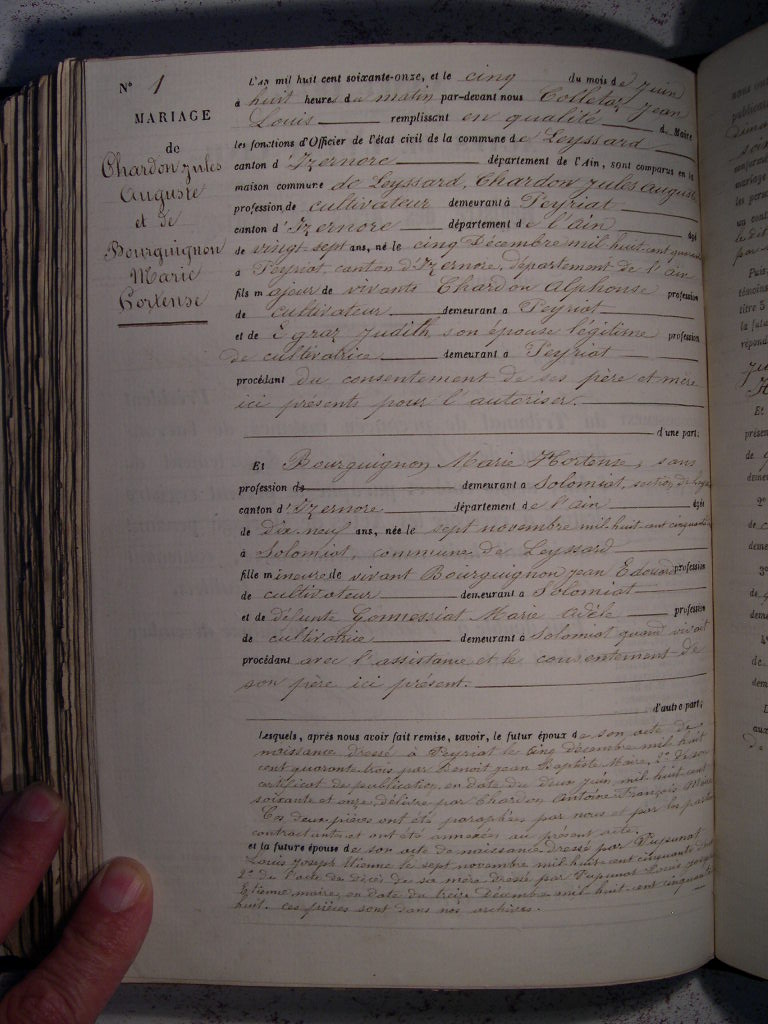 N° 1
MARIAGE
de
Chardon Jules
Auguste
et de
Bourguignon
Marie
Hortense
L'an mil huit cent soixante-onze, et le cinq du mois de Juin
à huit heures du matin par-devant nous Colletaz Jean
Louis remplissant en qualité de Maire
les fonctions d'Officier de l'état civil de la commune de Leyssard
canton d'Izernore département de l'Ain, sont comparus en la
maison commune de Leyssard, Chardon Jules Auguste
profession de cultivateur demeurant à Peyriat
canton d'Izernore département de l'ain âgé
de vingt-sept ans, né le cinq Décembre mil huit cent
a Peyriat, canton d'Izernore, département de l'ain
fils majeur de vivants Chardon Alphonse profession
de cultivateur demeurant a Peyriat
et de Egraz Judith son épouse légitime profession
de cultivatrice demeurant a Peyriat
procédant du consentement de ses père et mère
ici présents pour l'autoriser.
d'une part;
Et Bourguignon Marie Hortense, sans
profession de demeurant a Solomiat, section de
canton d'Izernore département de l'ain âgée
de Dix neuf ans, née le sept novembre mil huit cent cinquante
à Solomiat, commune de Leyssard
fille mineure de vivant Bourguignon Jean Edouard profession
de cultivateur demeurant a Solomiat
et de défunte Gomessiat Marie Adèle profession
de cultivatrice demeurant à Solomiat quand vivait
procédant avec l'assistance et le consentement de
son père ici présent.
d'autre part;
Lesquels, après nous avoir fait remise, savoir, le futur époux de son acte de
naissance dressé à Peyriat le cinq décembre mil huit
cent quarante trois par Benoit Jean Baptiste Maire, 2° de son
certificat de publication, en date du deux Juin mil huit cent
soixante et onze, délivré par Chardon Antoine François Maire
Ces deux pièces ont été paraphées par nous et par les parties
contractantes et ont été annexées au présent acte.
et la future épouse de son acte de naissance dressé par Pupunat
Louis Joseph Etienne le sept novembre mil huit cent cinquante
2° de l'acte de décès de sa mère dressé par Pupunat Louis Joseph
Etienne maire, en date du treize Décembre mil huit cent cinquante
huit. Ces pièces sont dans nos archives.